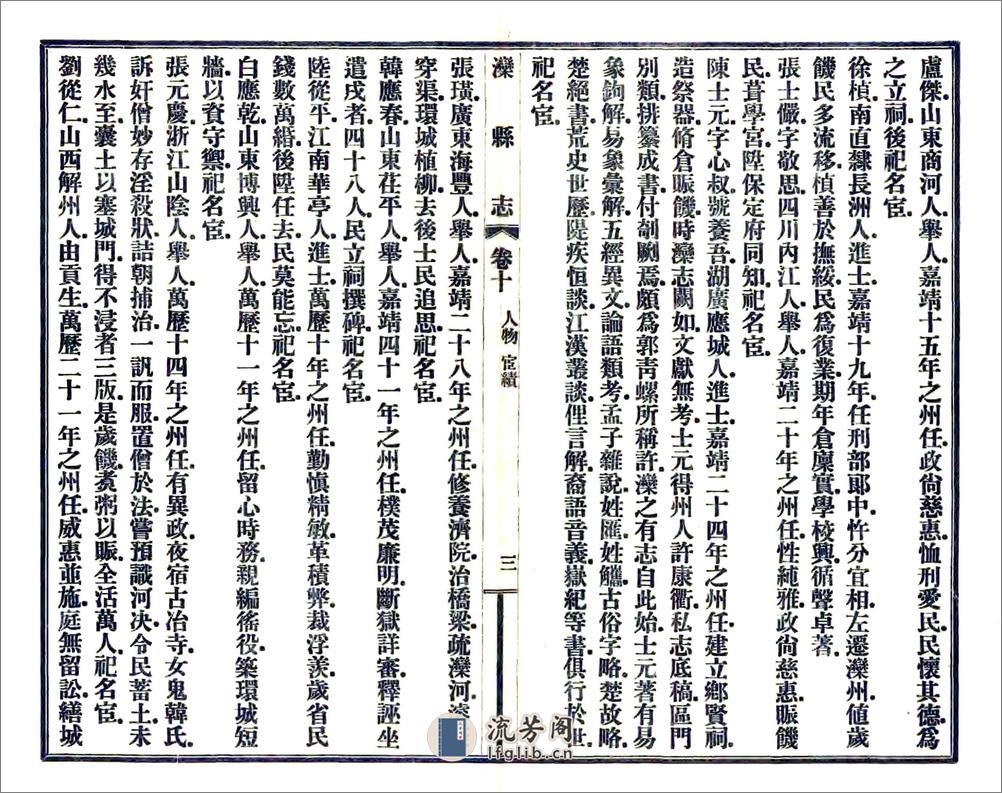 盧傑山東商河人舉人嘉靖十五年之州任政尙慈惠恤刑愛民民懷其德爲
之立祠後祀名宦
徐楨南直隸長洲人進士嘉靖十九年任刑部郞中忤分宜相左遷灤州値歲
饑民多流移楨善於撫綏民爲復業期年倉廩實學校興循聲卓著
張士儼字敬思四川內江人舉人嘉靖二十年之州任性純雅政尙慈惠賑饑
民葺學宮陞保定府同知祀名宦
陳士元字心叔號養吾湖廣應城人進士嘉靖二十四年之州任建立鄕賢祠
造祭器脩倉賑饑時灤志闕如文獻無考士元得州人許康衢私志底稿區門
別類排纂成書付剞劂焉頗爲郭靑螺所稱許灤之有志自此始士元著有易
象鉤解易象彙解五經異文論語類考孟子雜說姓匯姓觿古俗字略楚故略
楚絕書荒史世歷隄疾恒談江漢叢談俚言解裔語音義嶽紀等書俱行於世
祀名宦
灤縣志 卷十 人物 宦績 三
張璜廣東海豐人舉人嘉靖二十八年之州任修養濟院治橋梁疏灤河濬
穿渠環城植柳去後士民追思祀名宦
韓應春山東茌平人舉人嘉靖四十一年之州任樸茂廉明斷獄詳審釋誣坐
遣戍者四十八人民立祠撰碑祀名宦
陸從平江南華亭人進士萬歷十年之州任勤愼精敏革積弊裁浮羨歲省民
錢數萬緡後陞任去民莫能忘祀名宦
白應乾山東博興人舉人萬歷十一年之州任留心時務親編徭役築環城短
牆以資守禦祀名宦
張元慶浙江山陰人舉人萬歷十四年之州任有異政夜宿古冶寺女鬼韓氏
訴奸僧妙存淫殺狀詰朝捕治一訊而服置僧於法嘗預識河决令民蓄土未
幾水至囊土以塞城門得不浸者三版是歲饑煮粥以賑全活萬人祀名宦
劉從仁山西解州人由貢生萬歷二十一年之州任威惠並施庭無留訟繕城
流芳閣
lfglib.cn